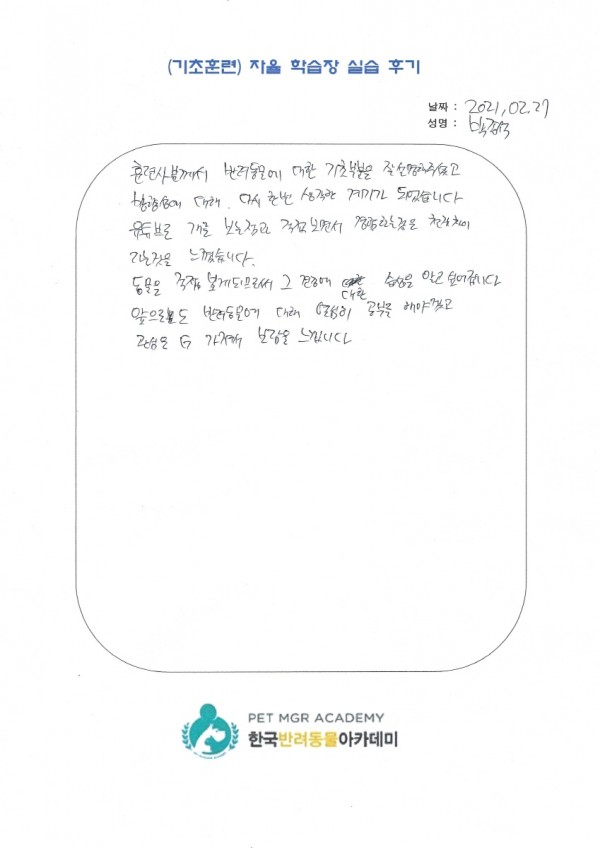 (기초훈련) 자율 학습장 실습 후기
날짜 : 2021.02.27
성명 :
훈련사분께서 반려동물에 대한 기초부분을 잘 설명해주셨고
방향성에 대해. 다시 한번 생각한 계기가 되었습니다
유튜브로 개를 보는거과 직접 보면서 경험하는것은 천지차이
라는것을 느꼈습니다.
동물을 직접 보게되므로써 그 견종에 대한 습성을 알고 싶어집니다
앞으로도 반려동물에 대해 열심히 공부를 해야겠고
관심을 더 가지며 보람을 느낍니다
PET MGR ACADEMY
한국반려동물아카데미